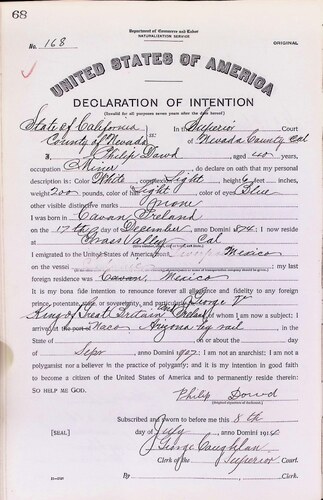 68
Department of Commerce and Labor
NATURALIZATION SERVICE
No. 168
ORIGINAL
UNITED STATES OF AMERICA
DECLARATION OF INTENTION
(Invalid for all purposes seven years after the date hereof)
State of California
County of Nevada
ss:
In the Superior Court
of Nevada County Cal
I, Philip Dowd, aged 40 years,
occupation Miner, do declare on oath that my personal
description is: Color White, complexion light, height 6 feet inches,
weight 200 pounds, color of hair light, color of eyes Blue
other visible distinctive marks none
I was born in Cavan Ireland
on the 17th day of December, anno Domini 1874; I now reside
at Grass Valley, Cal
I emigrated to the United States of America from Mexico
on the vessel ; my last
foreign residence was Mexico
It is my bona fide intention to renounce forever all allegiance and fidelity to any foreign
prince, potentate, state, or sovereignty, and particularly to George V
King of Great Britain and Ireland, of whom I am now a subject; I
arrived at the port of Naco Arizona by rail, in the
State of on or about the day
of Sepr, anno Domini 1907; I am not an anarchist; I am not a
polygamist nor a believer in the practice of polygamy; and it is my intention in good faith
to become a citizen of the United States of America and to permanently reside therein:
SO HELP ME GOD.
Philip Dowd
(Original signature of declarant.)
Subscribed and sworn to before me this 8th
[SEAL]
day of July, anno Domini 1914
George Caughlan
Clerk of the Superior Court.
By , Clerk.